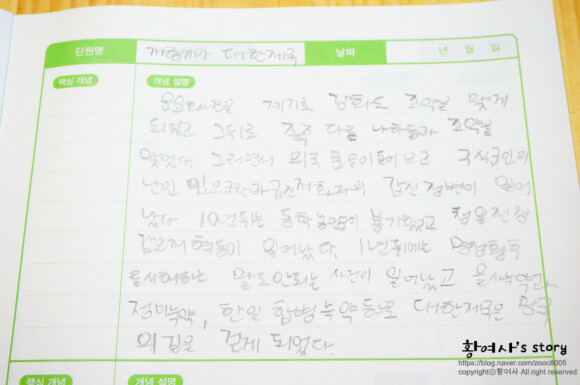 단원명 개항기과 대한제국 날짜 년 월 일
핵심 개념 개념 설명
운요호사건을 계기로 강화도 조약을 맺게
되었고 그뒤로 쭉쭉 다른 나라들과 조약을
맺었다. 그러면서 외국 들이 오고 구식군인의
난인 임오군란과 급진개화파의 갑신정변이 일어
났다 10년뒤는 동학농민이 봉기하였고 청일전쟁
갑오개혁등이 일어났다. 1년뒤에는 명성황후
을시해하는 말도안되는 사건이 일어났고 을사늑약과
정미늑약, 한일 합병늑약등으로 대한제국은 망국
의 길을 걷게 되었다.
핵심 개념 개념 설명
황여사's story
https://blog.naver.com/zooc8005
copyrightⓒ황여사 All Rights